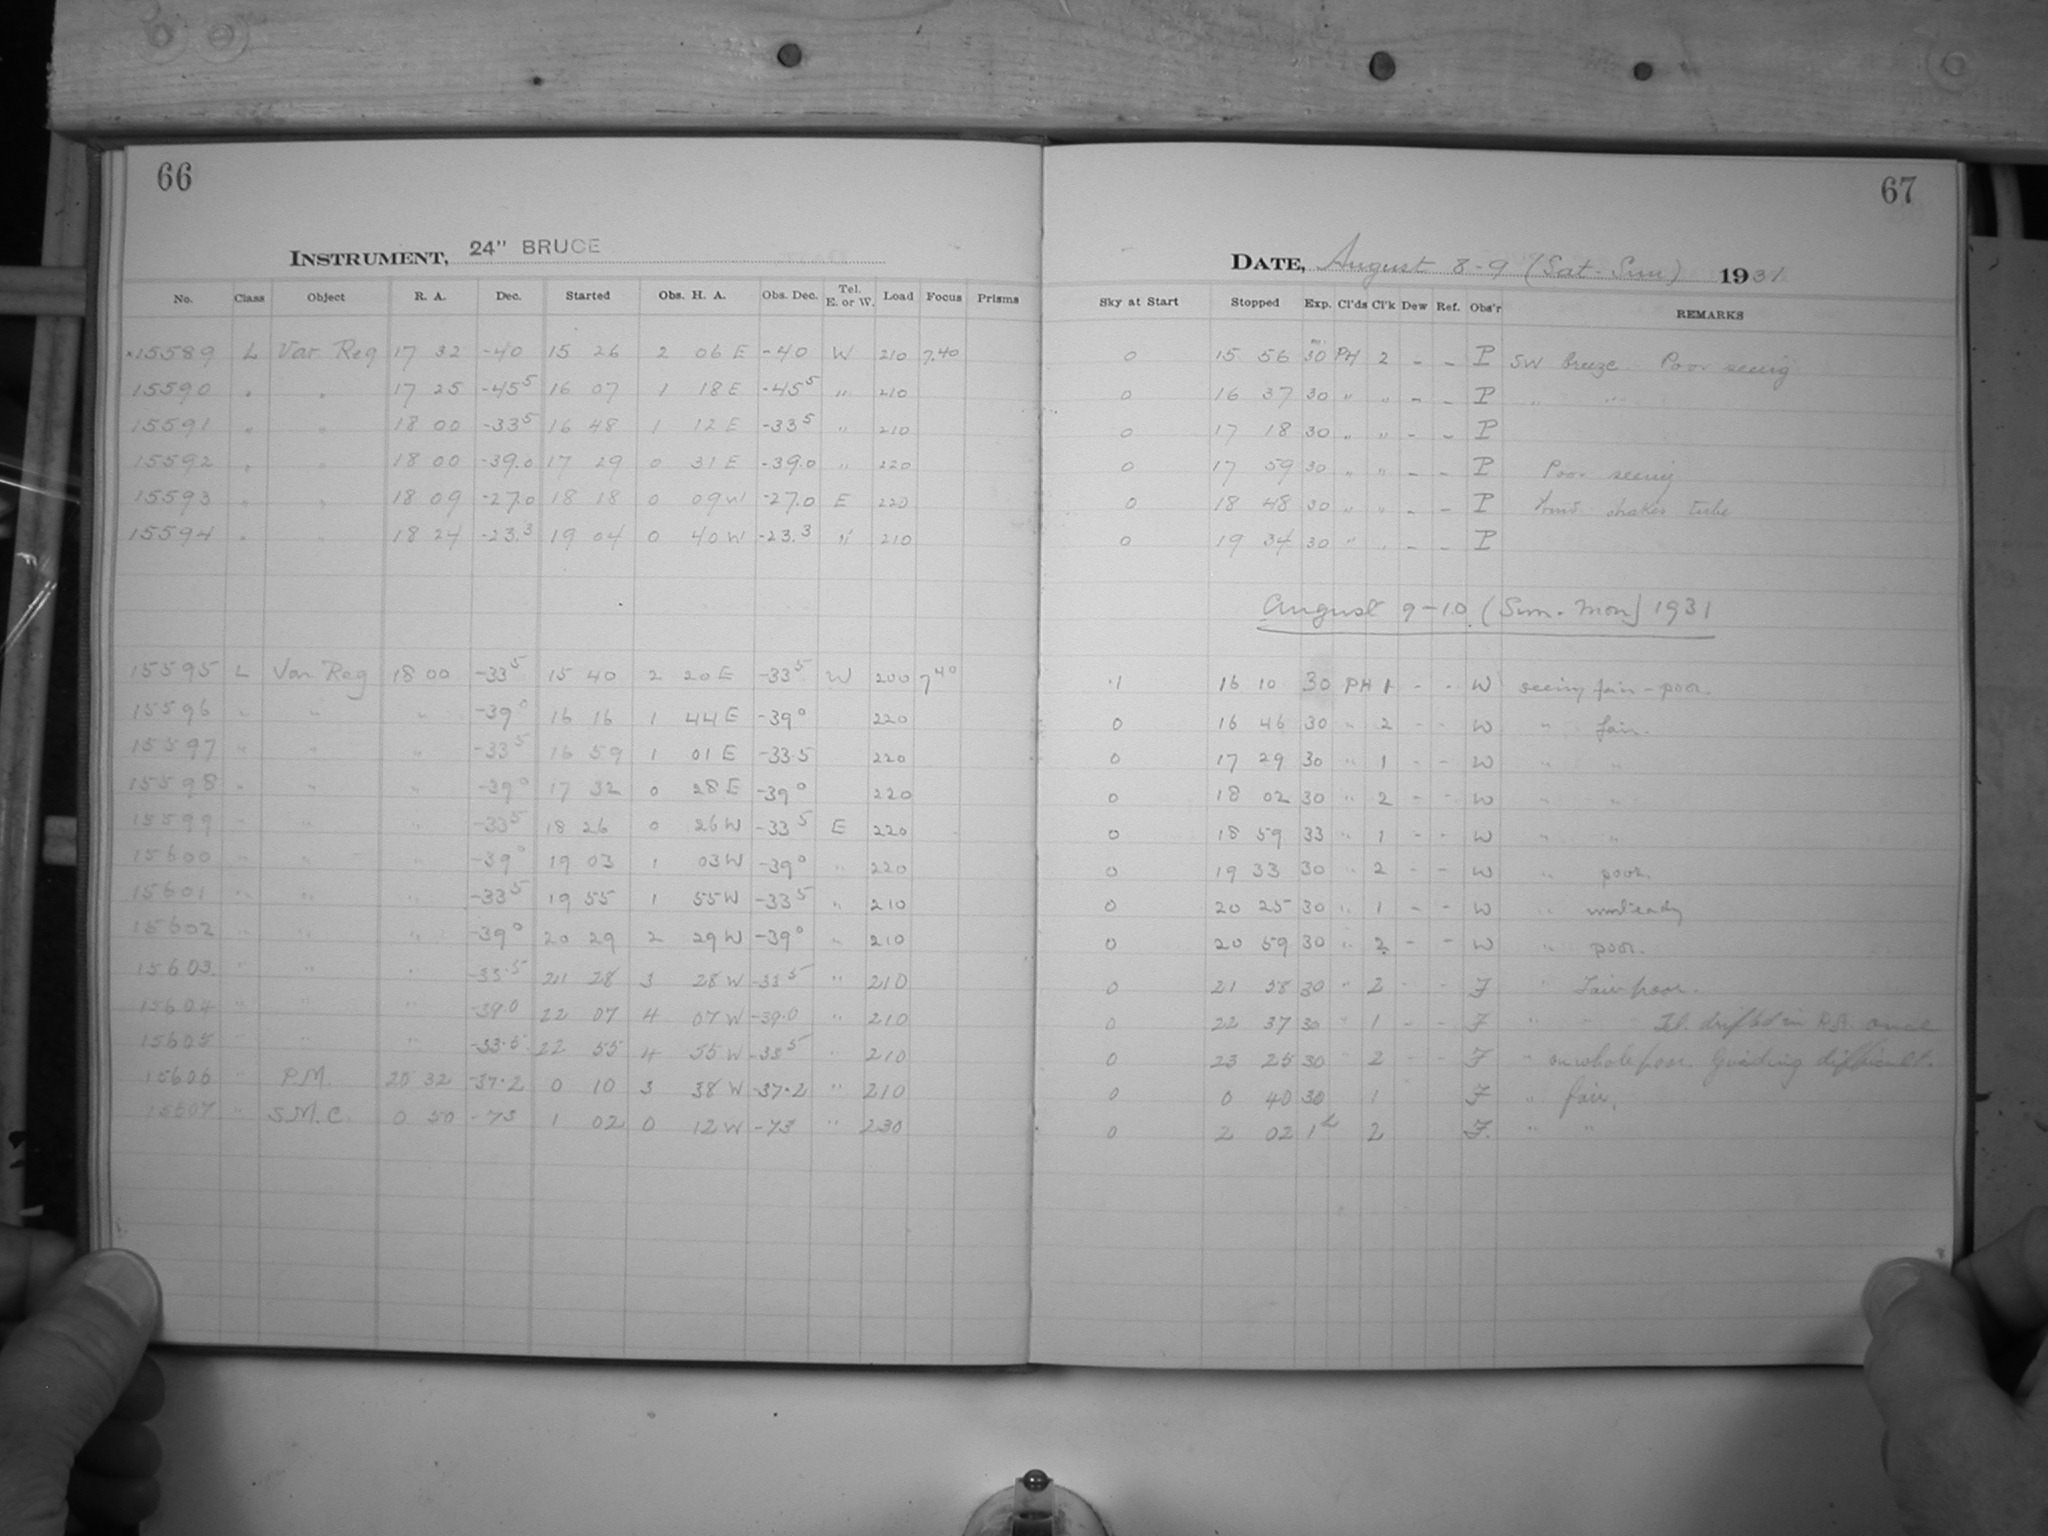 66
INSTRUMENT, 24" BRUCE
No. Class Object R. A. Dec. Started Obs. H. A. Obs. Dec. Tel. E. or W. Load Focus Prisms
×15589 L Var Reg 17 32 -40 15 26 2 06 E -40 W 210 7.40
15590 " " 17 25 -45⁵ 16 07 1 18 E -45⁵ " 210
15591 " " 18 00 -33⁵ 16 48 1 12 E -33⁵ " 210
15592 " " 18 00 -39.0 17 29 0 31 E -39.0 " 220
15593 " " 18 09 -27.0 18 18 0 09 W -27.0 E 220
15594 " " 18 24 -23.3 19 04 0 40 W -23.3 " 210
15595 L Var Reg 18 00 -33⁵ 15 40 2 20 E -33⁵ W 200 7⁴⁰
15596 " " " -39⁰ 16 16 1 44 E -39⁰ 220
15597 " " " -33⁵ 16 59 1 01 E -33.5 220
15598 " " " -39⁰ 17 32 0 28 E -39⁰ 220
15599 " " " -33⁵ 18 26 0 26 W -33⁵ E 220
15600 " " " -39⁰ 19 03 1 03 W -39⁰ " 220
15601 " " " -33⁵ 19 55 1 55 W -33⁵ " 210
15602 " " " -39⁰ 20 29 2 29 W -39⁰ " 210
15603 " " " -33.5 21 28 3 28 W -33⁵ " 210
15604 " " " -39.0 22 07 4 07 W -39.0 " 210
15605 " " " -33.5 22 55 4 55 W -33⁵ " 210
15606 " P.M. 20 32 -37.2 0 10 3 38 W -37.2 " 210
15607 " S.M.C. 0 50 -73 1 02 0 12 W -73 " 230
67
DATE, August 8-9 (Sat-Sun) 1931
Sky at Start Stopped Exp. Cl'ds Cl'k Dew Ref. Obs'r REMARKS
0 15 56 30 PH 2 - - P SW Breeze. Poor seeing
0 16 37 30 " " - - P " "
0 17 18 30 " " - - P
0 17 59 30 " " - - P Poor seeing
0 18 48 30 " " - - P Wind shakes tube
0 19 34 30 " " - - P
August 9-10 (Sun-Mon) 1931
.1 16 10 30 PH 1 - - W seeing fair-poor.
0 16 46 30 " 2 - - W " fair.
0 17 29 30 " 1 - - W " "
0 18 02 30 " 2 - - W " "
0 18 59 33 " 1 - - W " "
0 19 33 30 " 2 - - W " poor.
0 20 25 30 " 1 - - W " unsteady
0 20 59 30 " 2 - - W " poor.
0 21 58 30 " 2 - - F " Fair-poor.
0 22 37 30 " 1 - - F " " drifted in R.A. once
0 23 25 30 " 2 - - F " on whole poor. Guiding difficult.
0 0 40 30 1 F " fair.
0 2 02 1ʰ 2 F. " "